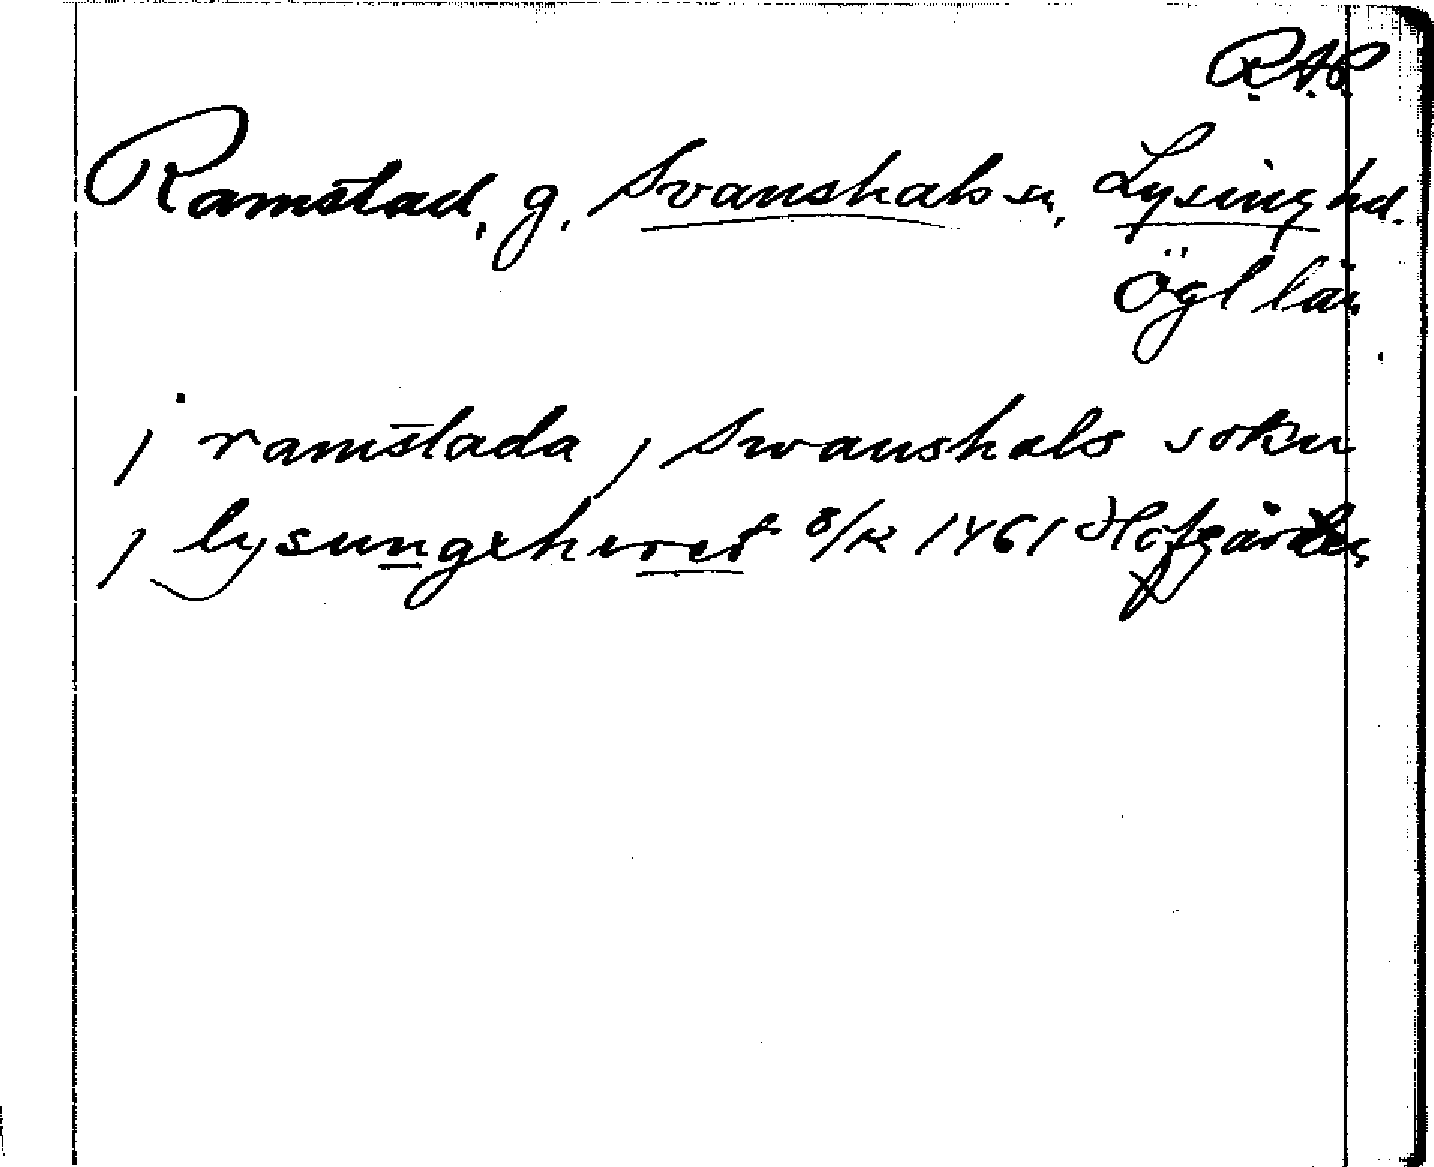 R.A.P.
Ramstad, g. Svanshals sn, Lysing hd.
Ögl län
j ramstada j swanshals sokn
j lysungxheret 8/12 1461 Hofgården